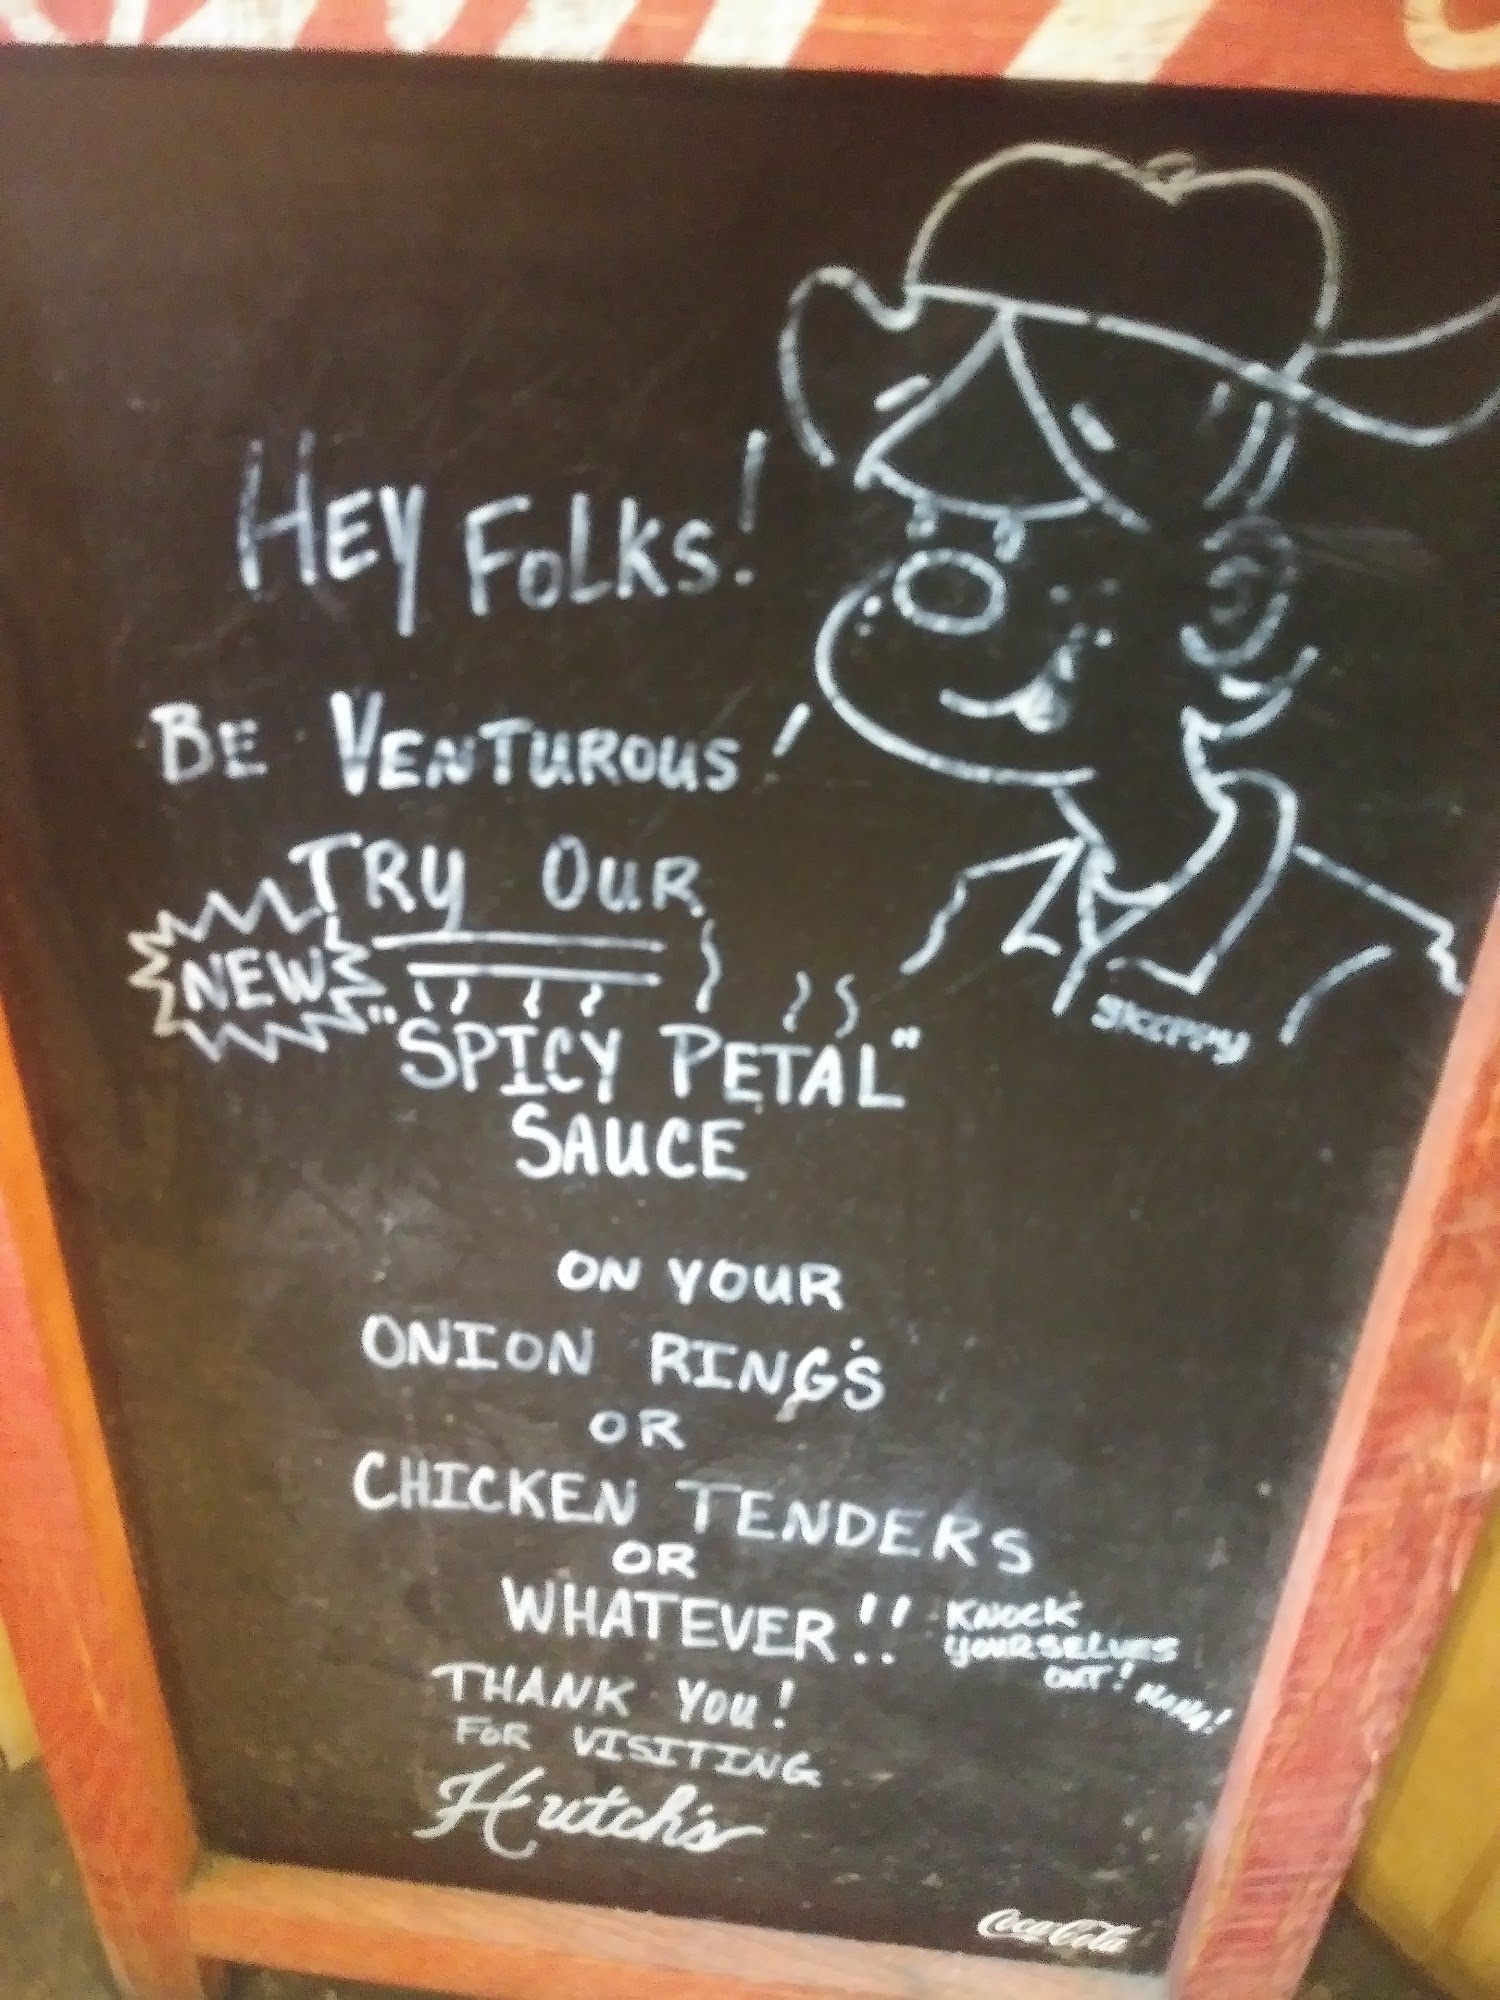 HEY FOLKS!
BE VENTUROUS!
TRY OUR
NEW
"SPICY PETAL"
SAUCE
ON YOUR
ONION RING'S
OR
CHICKEN TENDERS
OR
WHATEVER!!
KNOCK
YOURSELVES
OUT!
THANK YOU!
FOR VISITING
Hutch's
Coca-Cola